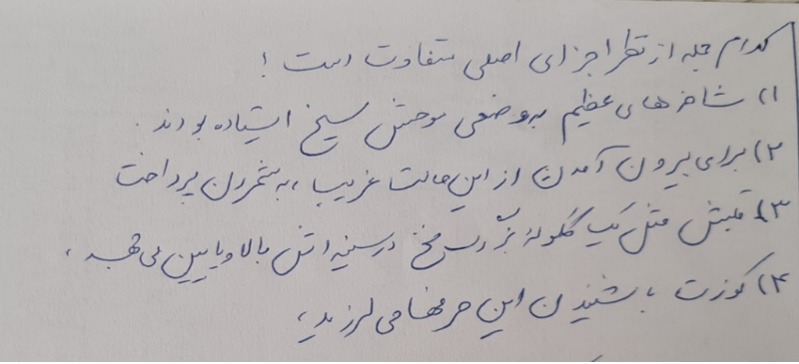 کدام جمله از نظر اجزای اصلی متفاوت است!
۱) شاخه‌های عظیم به وضعی موحش سیخ ایستاده بودند.
۲) برای بیرون آمدن از این حالت غریب، به شمردن پرداخت
۳) قلبش مثل یک گلوله بزرگ سرخ در سینه‌اش بالا و پایین می‌جهید،
۴) کوزت با شنیدن این حرفها می‌لرزید،